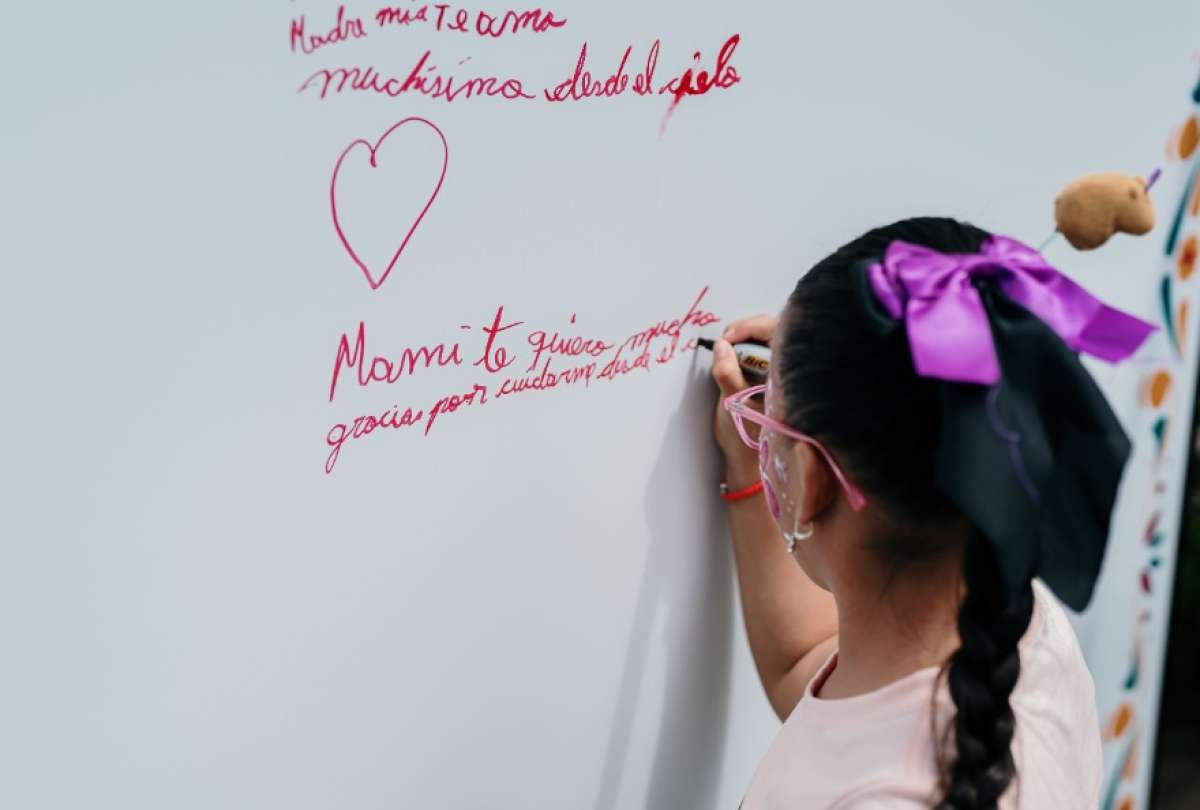 Madre mia Te amo
muchísimo desde el cielo
Mami te quiero mucho
gracias por cuidarme desde el c
BIC